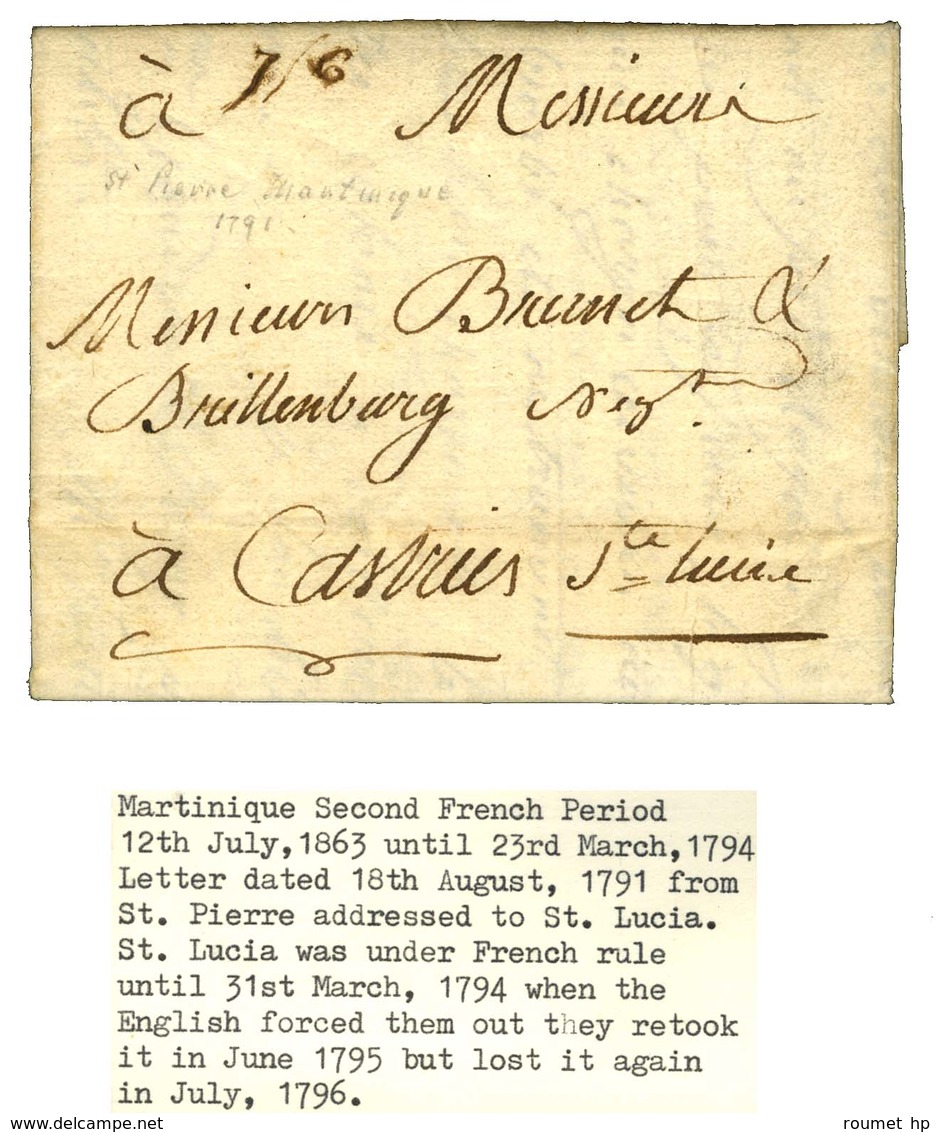 à 7/6 Messieurs
St Pierre Martinique
1791.
Messieurs Brunet &
Brillenburg Negts.
à Castries Ste Lucie
Martinique Second French Period
12th July,1863 until 23rd March,1794
Letter dated 18th August, 1791 from
St. Pierre addressed to St. Lucia.
St. Lucia was under French rule
until 31st March, 1794 when the
English forced them out they retook
it in June 1795 but lost it again
in July, 1796.
roumet hp